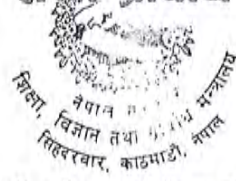 शिक्षा, विज्ञान तथा मन्त्रालय
नेपाल
सिंहदरवार, काठमाडौं, नेपाल